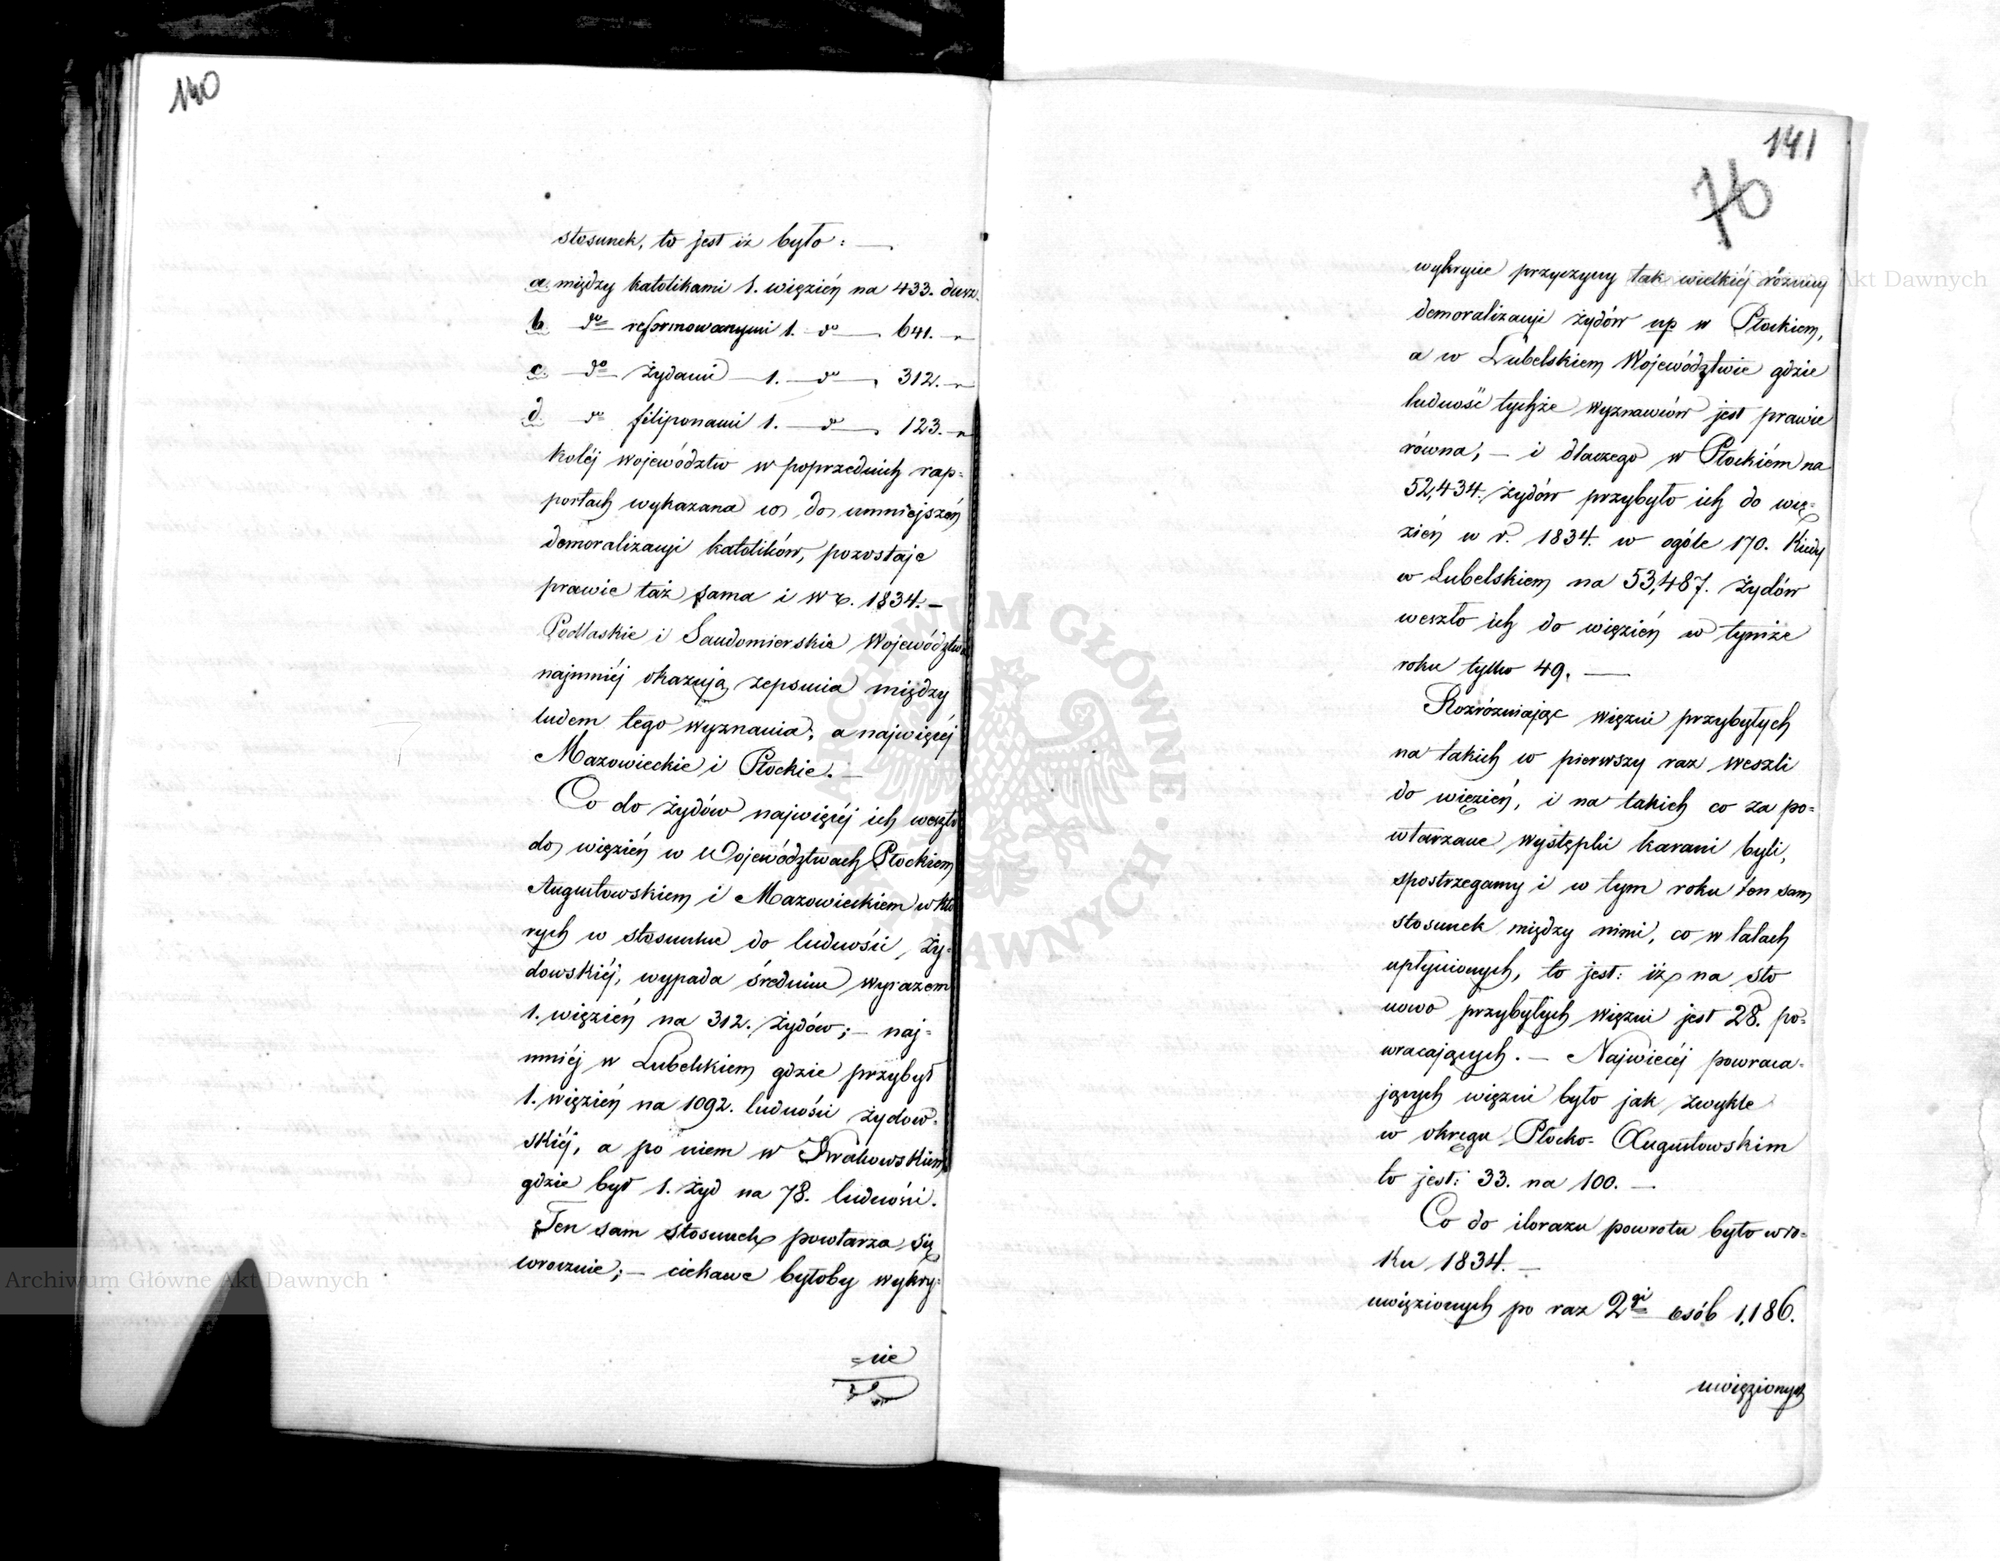 140
stosunek, to jest iż było: —
a między katolikami 1. więzień na 433. dusz.
b do reformowanymi 1. do — 641. "
c. — do żydami — 1. — do — 312. "
d. do filiponami 1. — do — 123. "
kolej województw w poprzednich rap-
portach wykazana co do umniejszeń
demoralizacyi katolików, pozostaje
prawie taż sama i w r. 1834. —
Podlaskie i Sandomierskie Województwa
najmniej okazują zepsucia między
ludem tego wyznania, a najwięcéj
Mazowieckie i Płockie. —
Co do żydów najwięcéj ich weszło
do więzień w Województwach Płockiem
Augustowskiem i Mazowieckiem w któ
rych w stosunku do ludności, ży-
dowskiéj, wypada średnim wyrazem
1. więzień na 312. żydów; — naj-
mniéj w Lubelskiem gdzie przybył
1. więzień na 1092. ludności żydow-
skiéj, a po niem w Krakowskiem
gdzie był 1. żyd na 78. ludności.
Ten sam stosunek powtarza się
corocznie; — ciekawe byłoby wykry-
-cie
141
76
wykrycie przyczyny tak wielkiéj różnicy
demoralizacyi żydów np w Płockiem,
a w Lubelskiem Województwie gdzie
ludność tychże wyznawców jest prawie
równa; — i dlaczego w Płockiém na
52,434. żydów przybyło ich do wię-
zień w r. 1834. w ogóle 170. Kiedy
w Lubelskiem na 53,487. żydów
weszło ich do więzień w tymże
roku tylko 49. —
Rozróżniając więźni przybyłych
na takich co pierwszy raz weszli
do więzień, i na takich co za po-
wtarzane występki karani byli,
spostrzegamy i w tym roku ten sam
stosunek między nimi, co w latach
upłynionych, to jest: iż na sto
nowo przybyłych więźni jest 28. po-
wracających. — Najwięcéj powraca-
jących więźni było jak zwykle
w okręgu Płocko-Augustowskim
to jest: 33. na 100. —
Co do ilorazu powrotu było w ro-
ku 1834. —
uwięzionych po raz 2gi osób 1,186.
uwięzionych
Archiwum Główne Akt Dawnych
Archiwum Główne Akt Dawnych
ARCHIWUM GŁÓWNE · AKT DAWNYCH ·